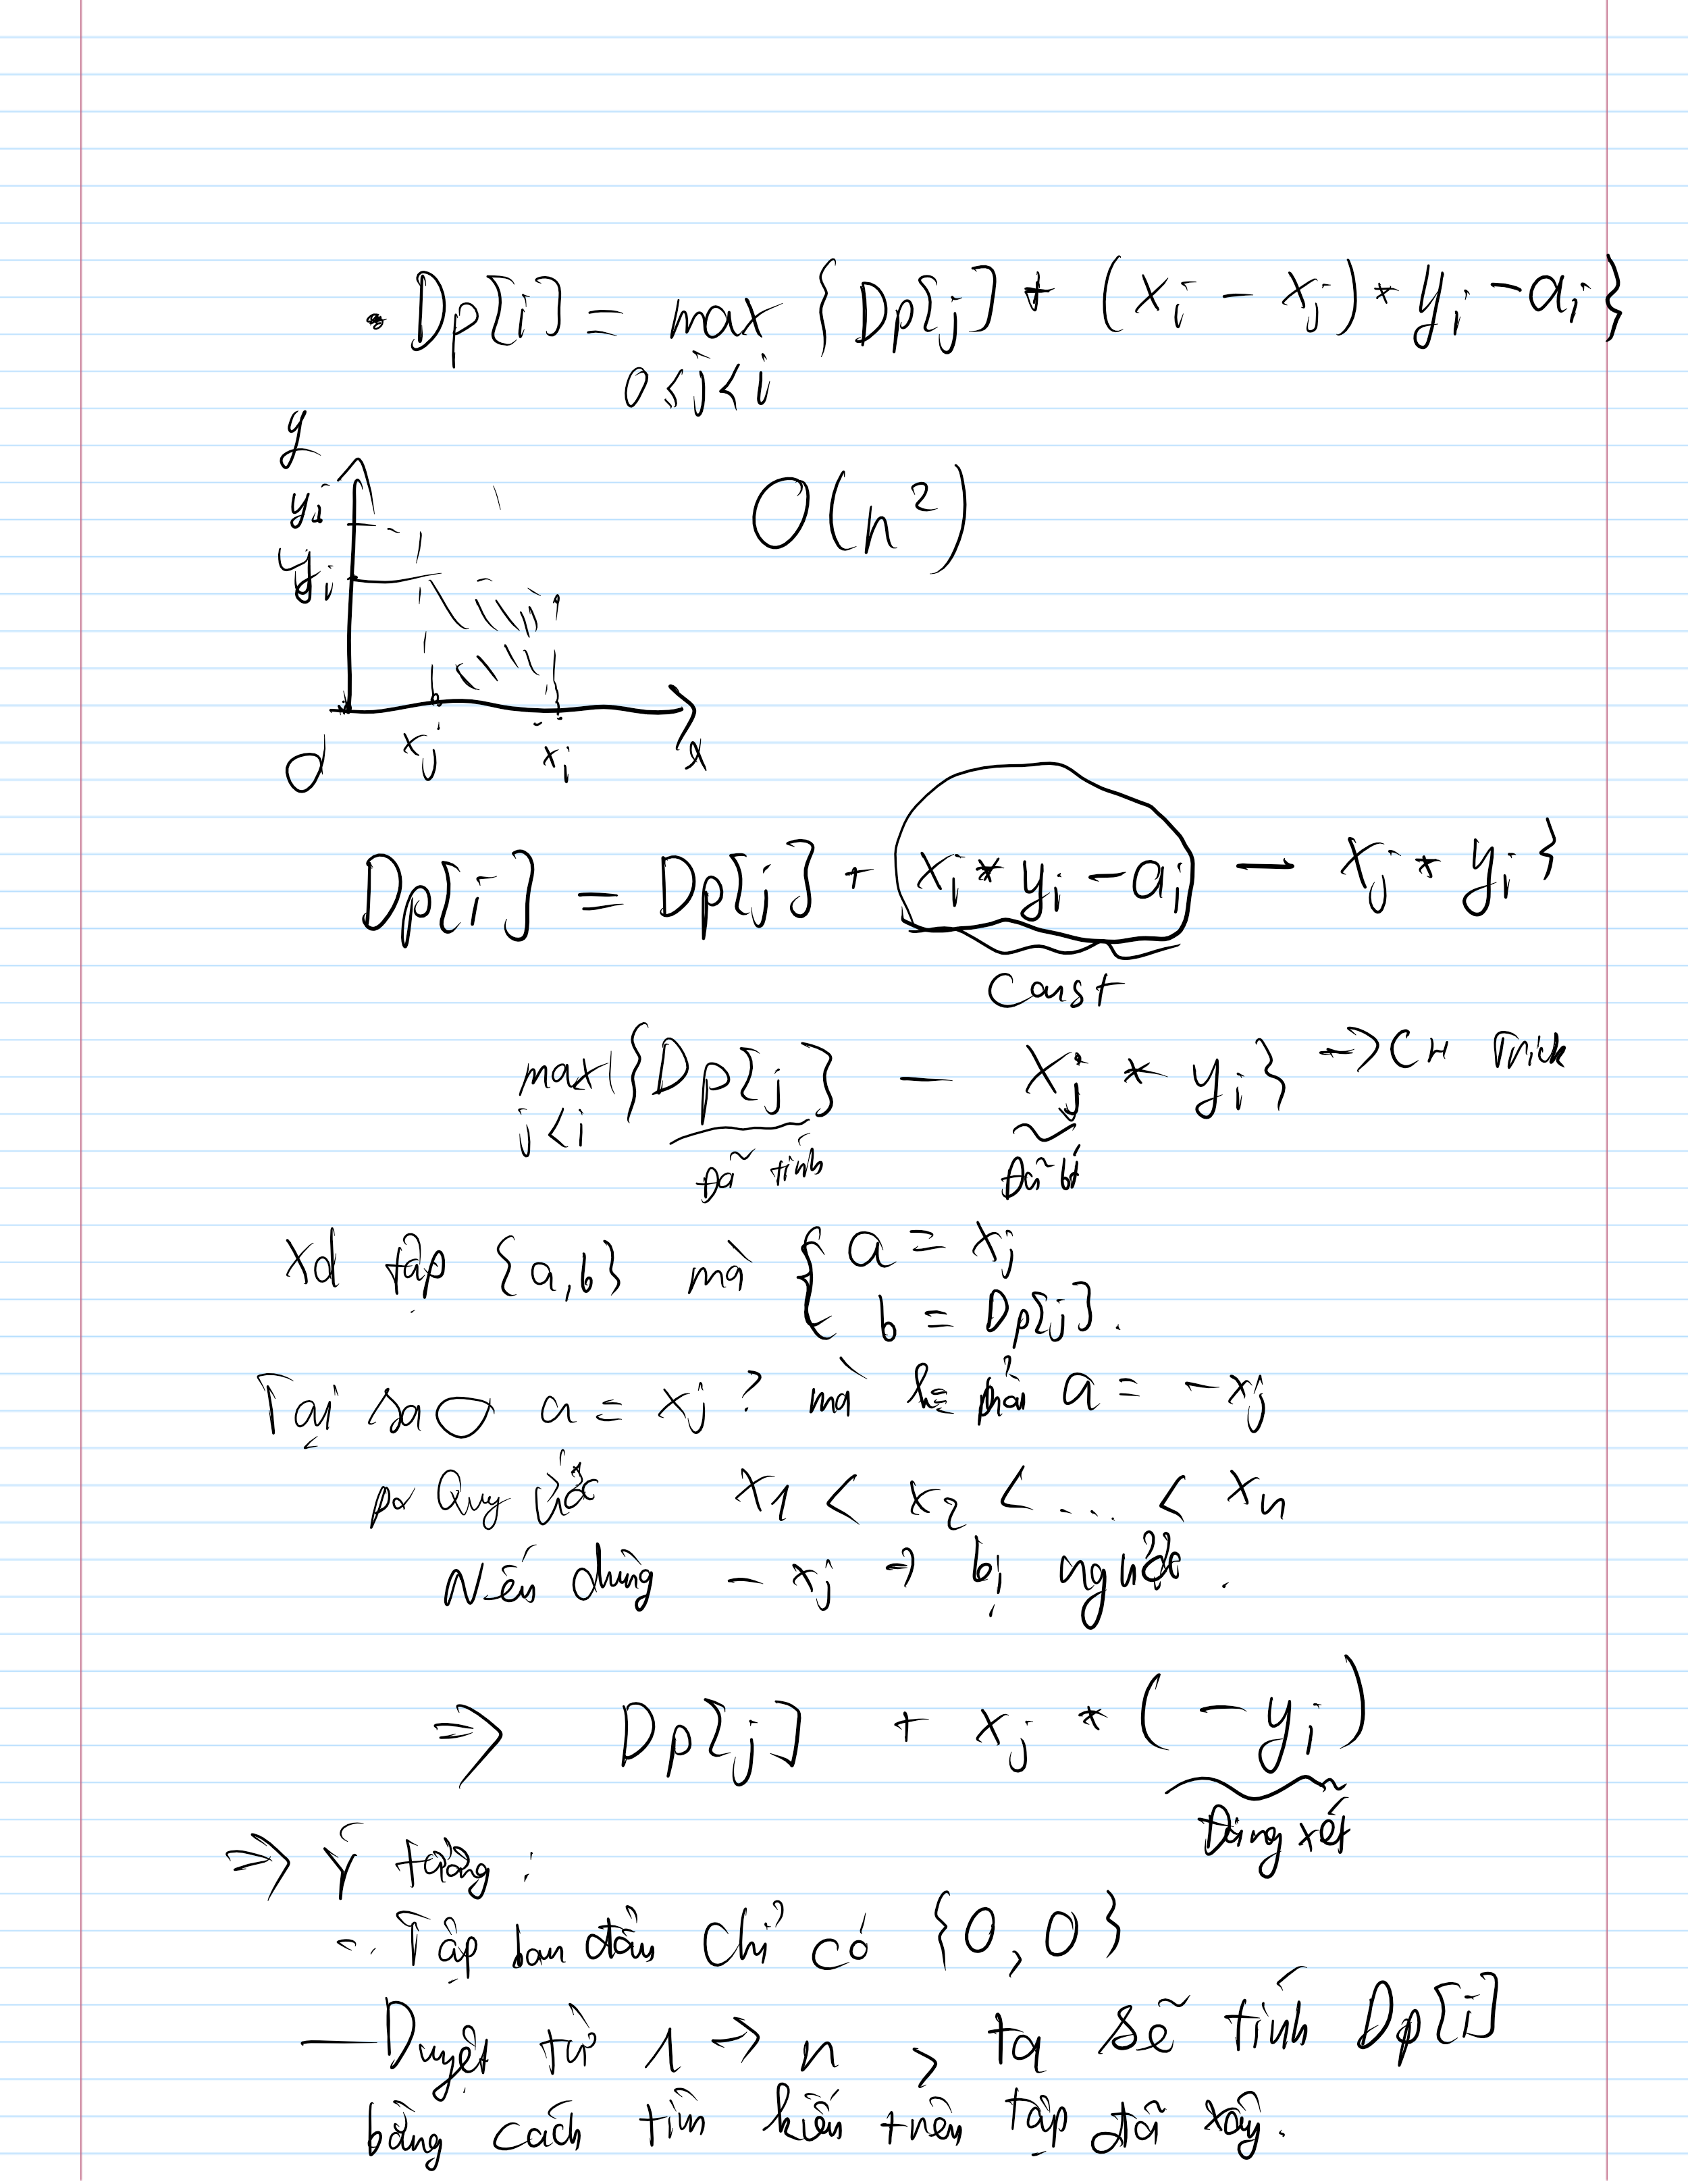 • Dp[i] = max {Dp[j] + (xi - xj) * yi - ai}
0 ≤ j < i
y
yi
yi
O(n²)
O xj xi x
Dp[i] = Dp[j] + xi * yi - ai - xj * yi}
Const
max {Dp[j] - xj * yi} -> CH Trick
j < i
Đã tính Đã bt
Xd tập {a,b} mà { a = xj
b = Dp[j].
Tại sao a = xj ? mà k phải a = -xj
Quy ước x1 < x2 < ... < xn
Nếu dùng - xj -> bị ngược.
=> Dp[j] + xj * (-yi)
Đang xét
=> Ý tưởng :
- Tập ban đầu chỉ có {0,0}
- Duyệt từ 1 -> n, ta sẽ tính Dp[i]
bằng cách tìm kiếm trên tập đã xây.